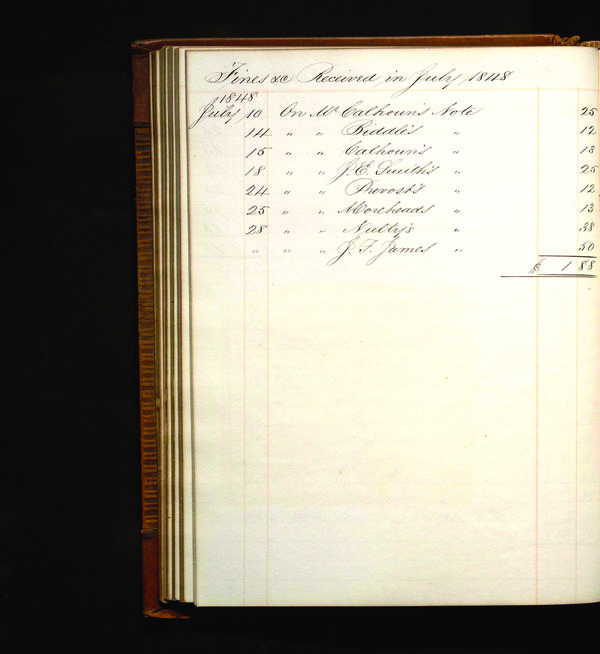 Fines &c Received in July, 1848
1848
July 10 On Mr Calhoun's Note 25
14 " " Biddle's " 12
15 " " Calhoun's " 13
18 " " J. E. Smith's " 25
24 " " Provost's " 12
25 " " Moreheads " 13
28 " " Nulty's " 38
" " " J. F. James " 50
$ 1 88